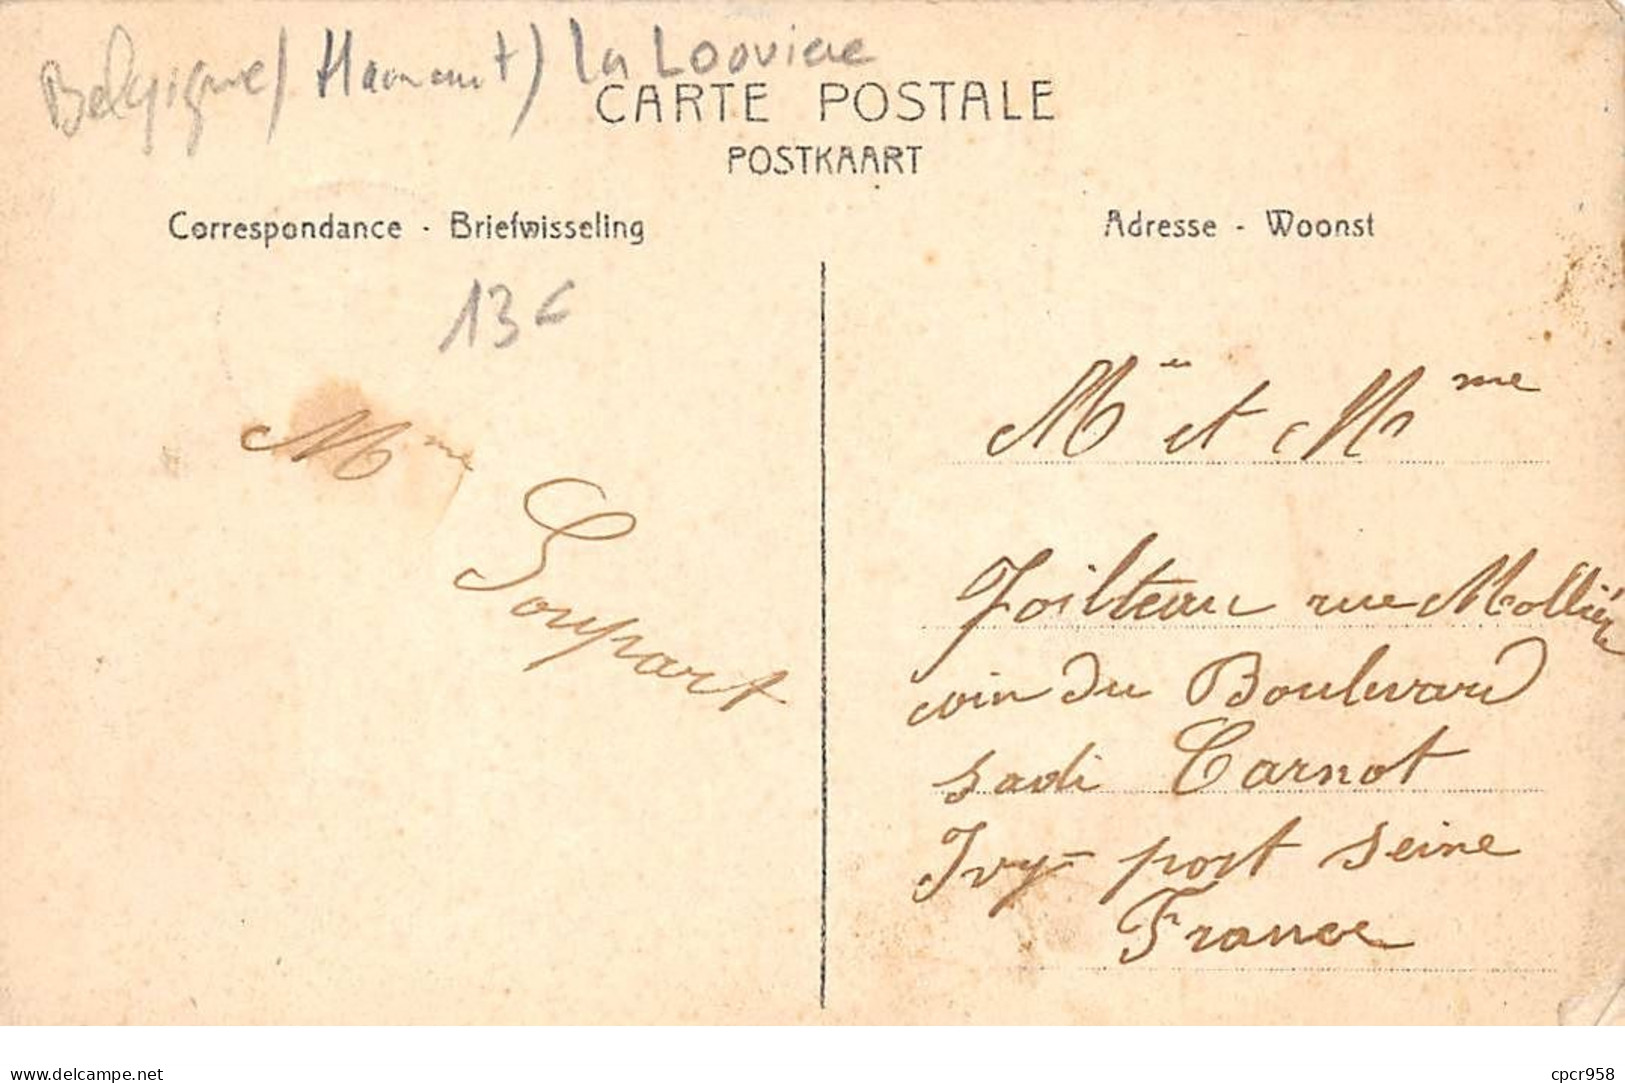 Belgique (Hainaut) La Louviere
CARTE POSTALE
POSTKAART
Correspondance - Briefwisseling
Adresse - Woonst
13€
Mme
Soupart
Mr et Mme
Foilteau rue Mollière
coin du Boulevard
Sadi Carnot
Ivry port Seine
France
www.delcampe.net
cpcr958